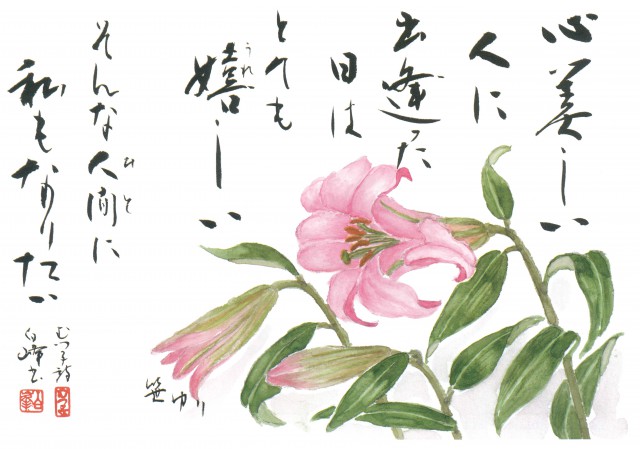 心美しい
人に
出逢った
日は
とても
嬉しい
うれ
そんな人間に
ひと
私もなりたい
むつ子詩
白峰書
笹ゆり